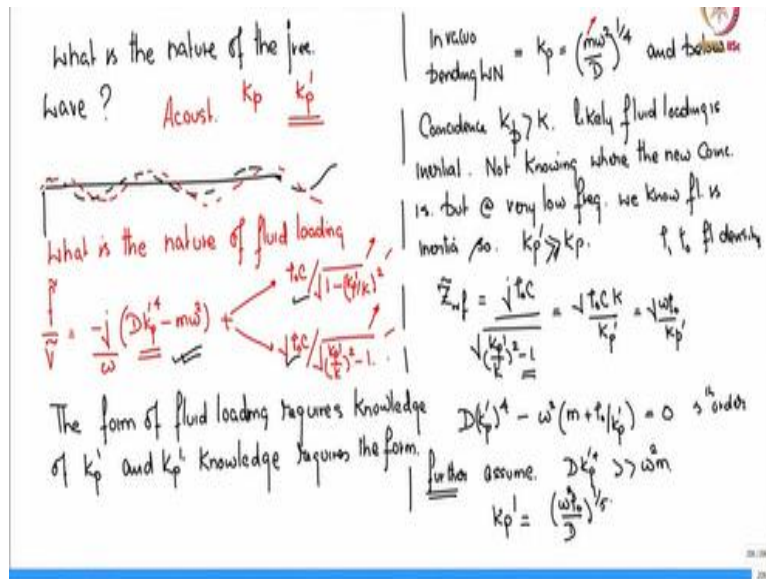 What is the nature of the free
wave? Acoust. kp kp'
What is the nature of fluid loading
f̃/Ṽ = -j/ω (Dkp'⁴ - mω²) + ρ₀c/√(1-(kp'/k)²)
jρ₀c/√((kp'/k)²-1)
The form of fluid loading requires knowledge
of kp' and kp' knowledge requires the form.
In vacuo
bending WN = kp = (mω²/D)^1/4 and below
Coincidence kp > k. likely fluid loading is
inertial. Not knowing where the new Coinc.
is. but @ very low freq. we know fl. is
inertia so. kp' ≫ kp. ρ, ρ₀ fl density
Z̃wf = jρ₀c/√((kp'/k)²-1) = jρ₀ck/kp' = jωρ₀/kp'
D(kp')⁴ - ω²(m + ρ₀/kp') = 0 5th order
further assume. Dkp'⁴ >> ω²m
kp' = (ω²ρ₀/D)^1/5